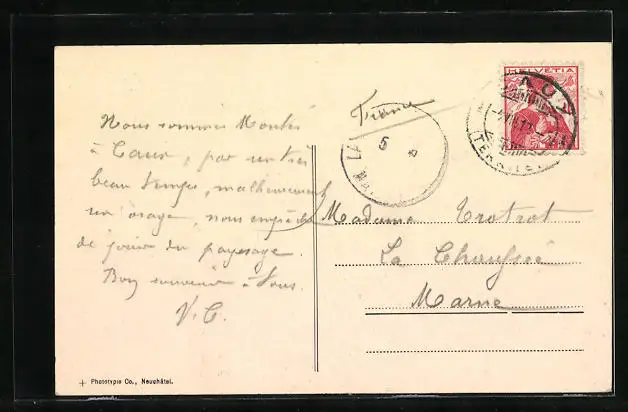 Nous sommes Montés
à Caux, par un très
beau temps, malheureusement
un orage, nous empêche
de jouir du paysage.
Bon souvenir à Tous.
V. C.
+ Phototypie Co., Neuchâtel.
HELVETIA
CAUX
France
5
8
Madame Trotrot
La Chaussée
Marne